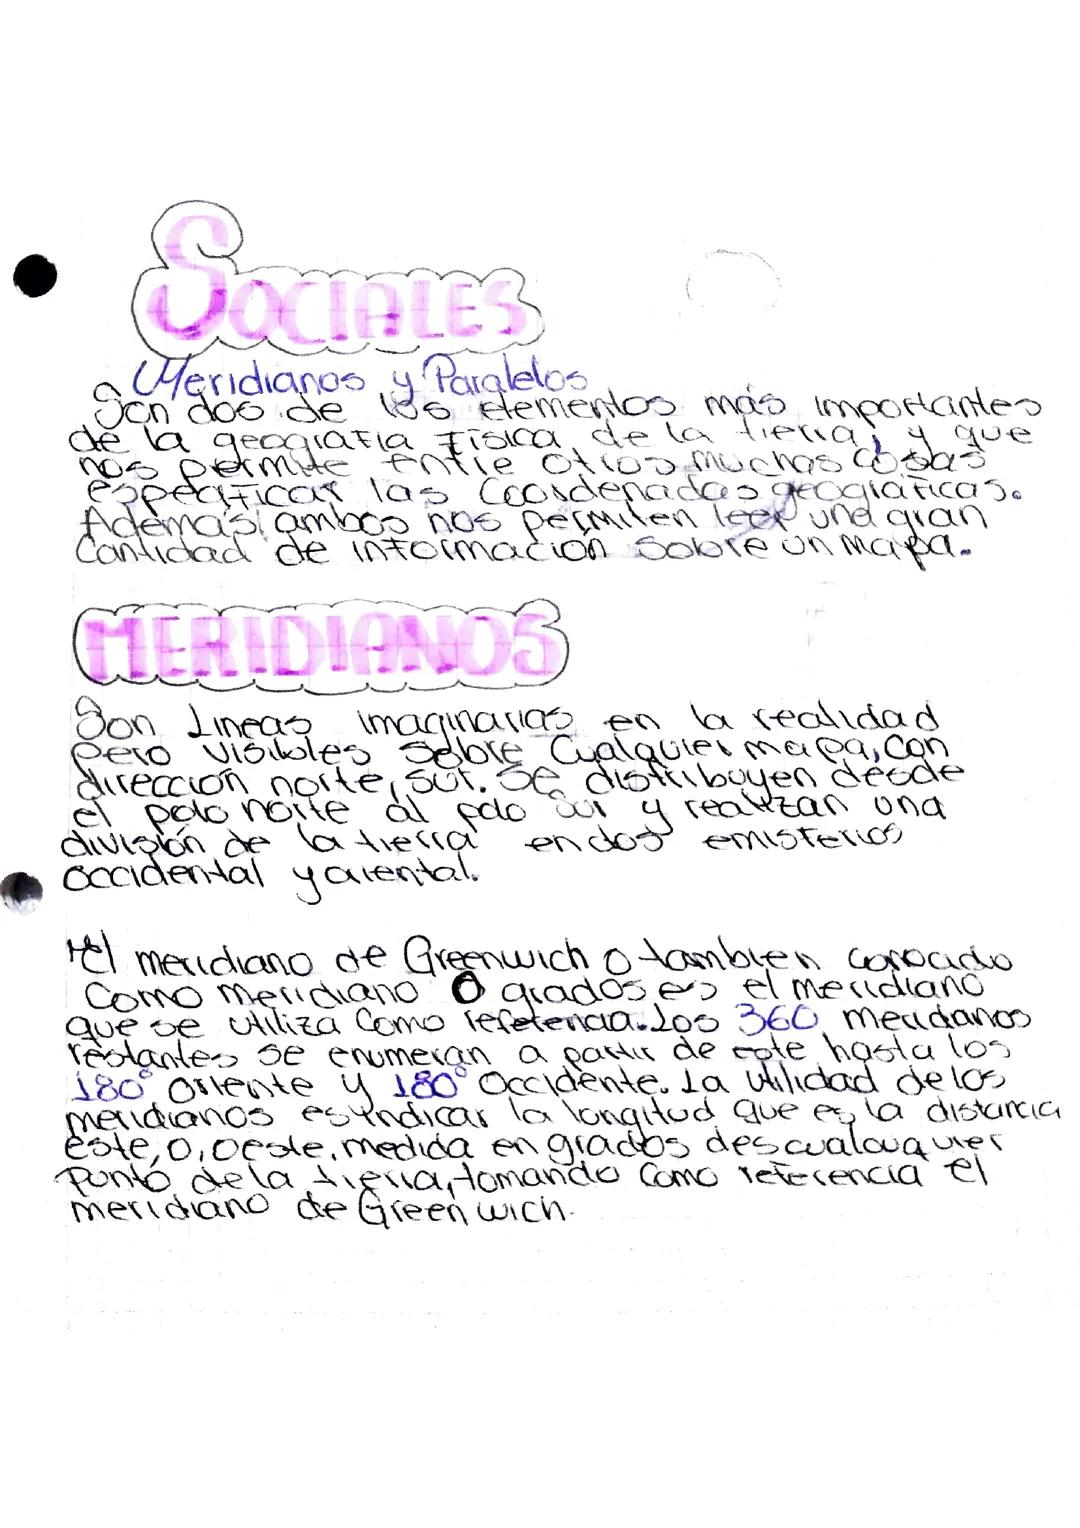 SOCIALES
Meridianos y Paralelos
Son dos de los elementos más importantes
de la geografia Fisica de la tierra, y que
nos permite entre otros muchas cosas
especificar las Coordenadas geográficas.
Además, ambos nos permiten leer una gran
Cantidad de información sobre un mapa.
MERIDIANOS
Son Lineas imaginarias en la realidad
pero visibles sobre Cualquier mapa, con
dirección norte, sur. Se distribuyen desde
el polo norte al polo sur y realizan una
división de la tierra en dos emisferios
occidental y oriental.
El meridiano de Greenwich o tambien conocido
Como meridiano 0 grados es el meridiano
que se utiliza Como referencia. Los 360 meridianos
restantes se enumeran a partir de este hasta los
180° oriente y 180° Occidente. La utilidad de los
meridianos es indicar la longitud que es la distancia
este, o, oeste, medida en grados des cualquier
Punto de la tierra, tomando Como referencia el
meridiano de Greenwich.